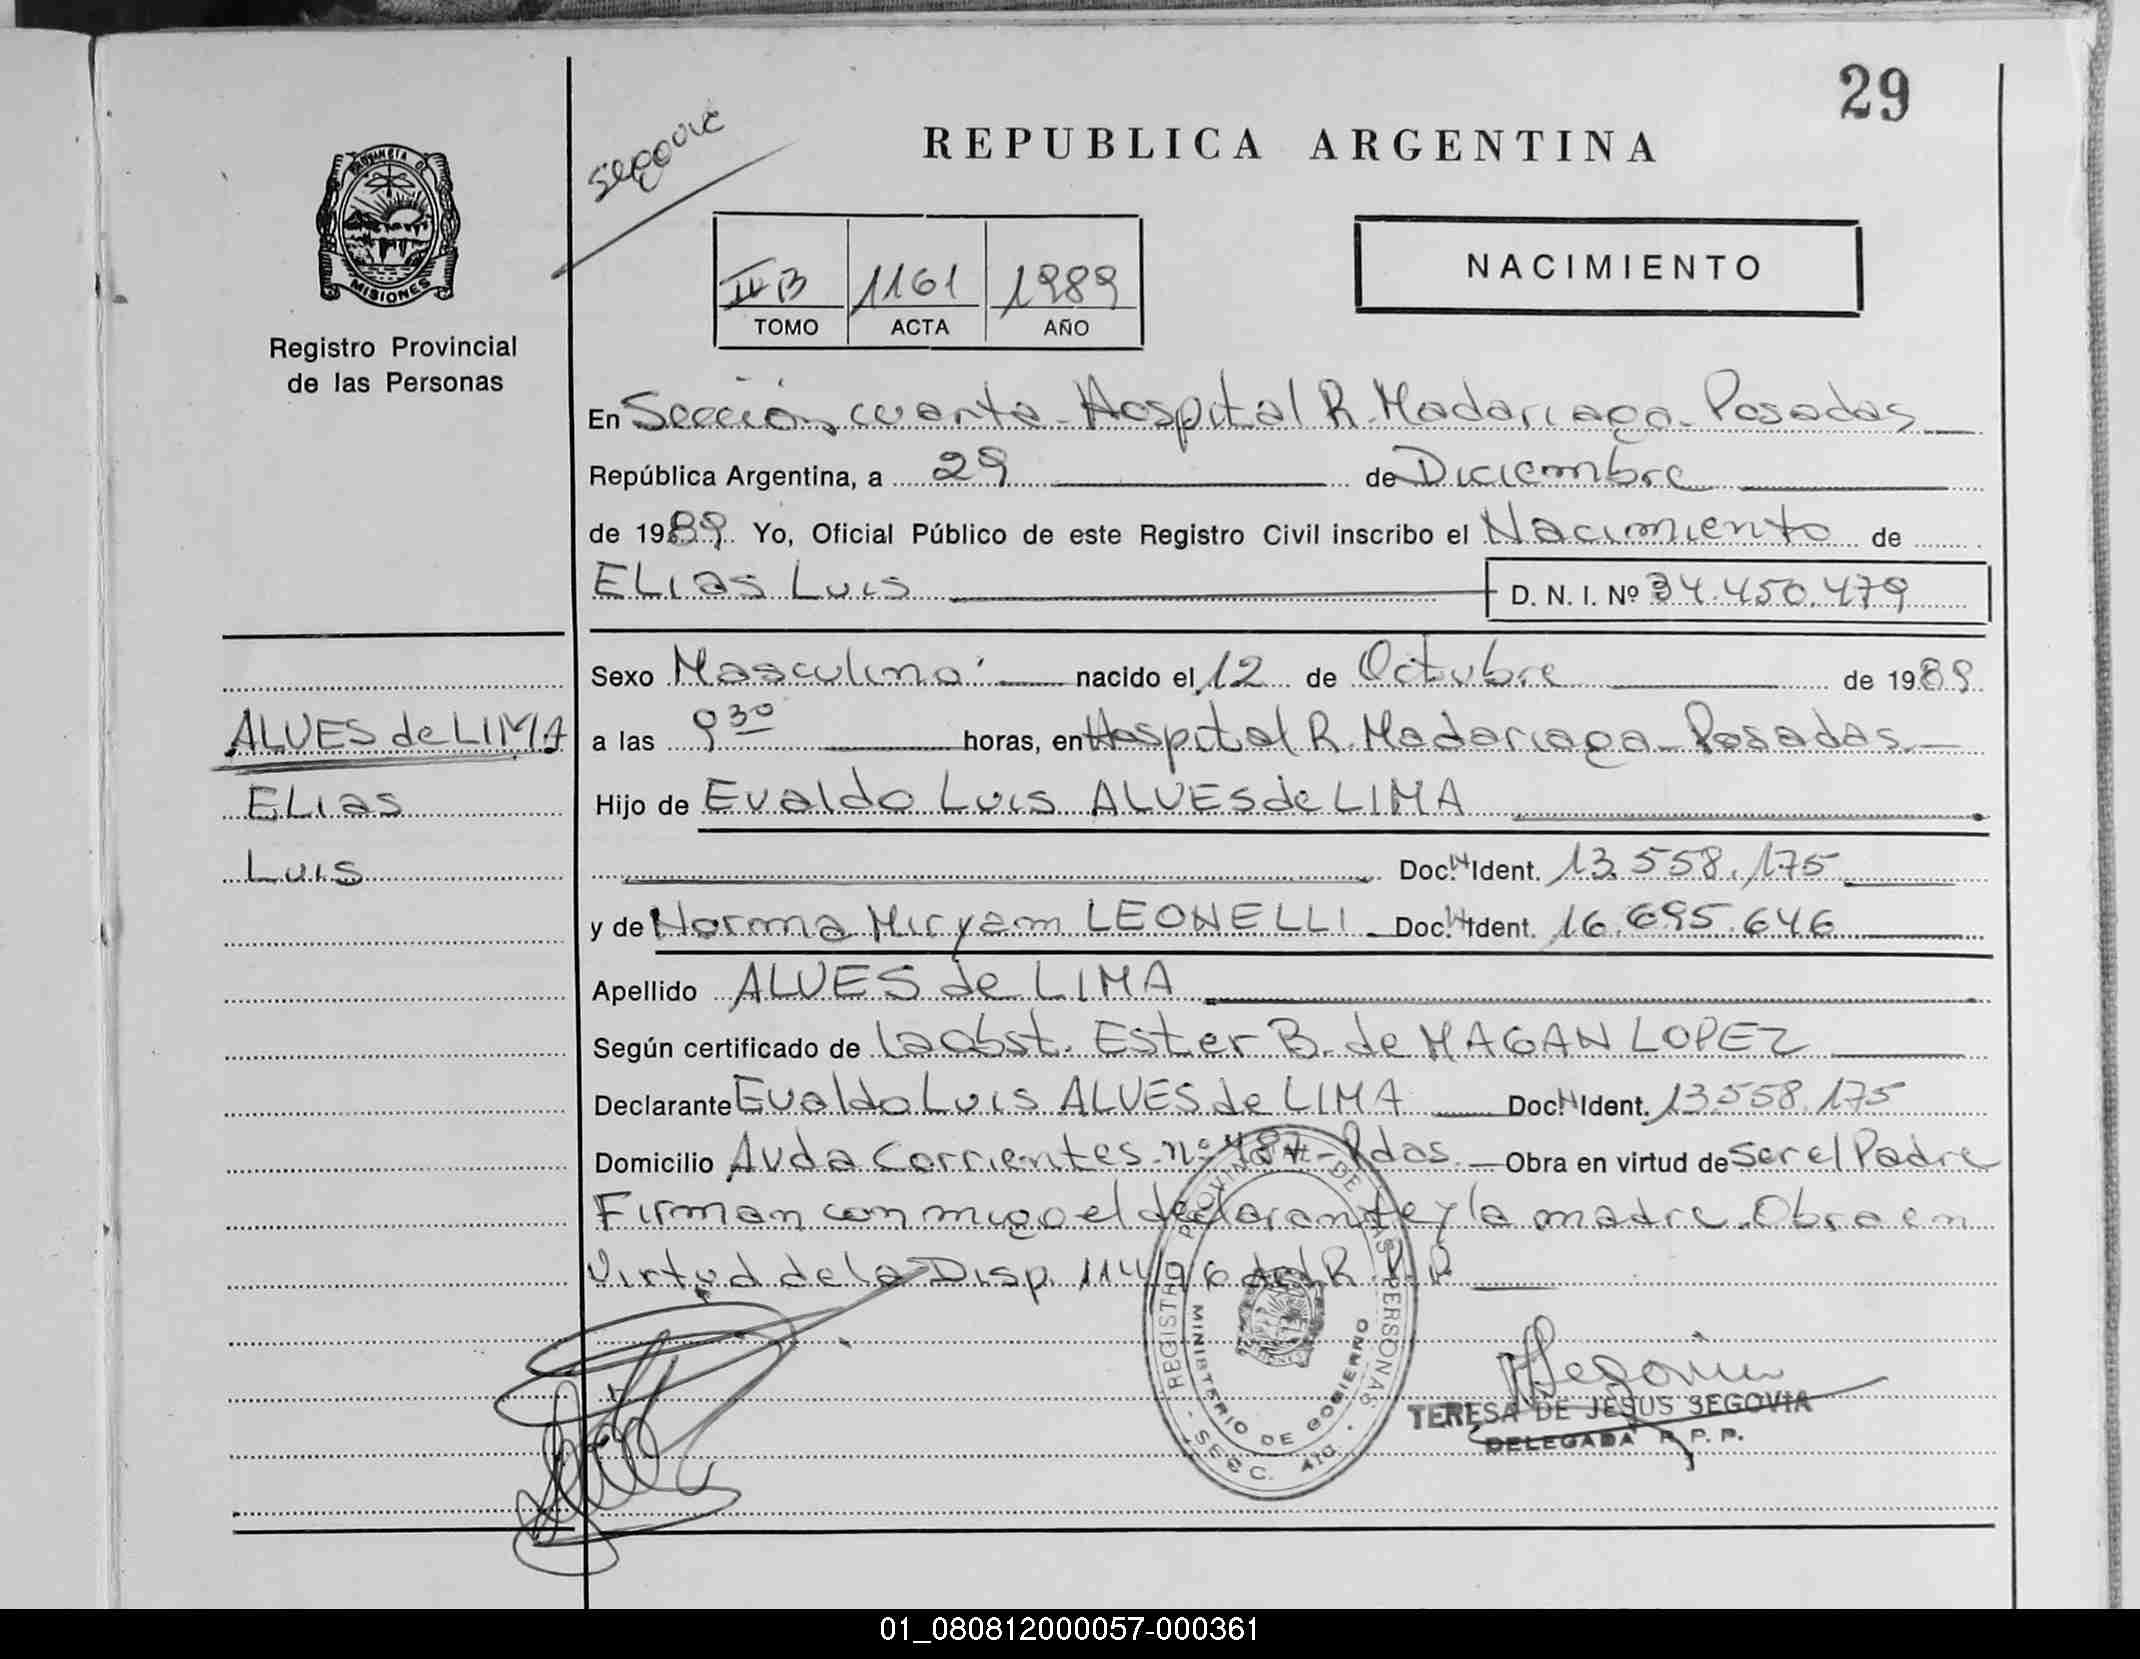 29
Segovia
REPUBLICA ARGENTINA
PROVINCIA DE
MISIONES
Registro Provincial
de las Personas
NACIMIENTO
B 1161 1989
TOMO ACTA AÑO
En Sección cuarta - Hospital R. Madariaga - Posadas
República Argentina, a 29 de Diciembre
de 1989 Yo, Oficial Público de este Registro Civil inscribo el Nacimiento de
ELias Luis D. N. I. Nº 34.450.479
Sexo Masculino nacido el 12 de Octubre de 1989
ALVES de LIMA
a las 9 30 horas, en Hospital R. Madariaga - Posadas
ELias
Hijo de Evaldo Luis ALVES de LIMA
Luis
Doc. N Ident. 13.558.175
y de Norma Miryam LEONELLI - Doc. N Ident. 16.695.646
Apellido ALVES de LIMA
Según certificado de la obst. Ester B. de MAGAN LOPEZ
Declarante Evaldo Luis ALVES de LIMA Doc. N Ident. 13558.175
Domicilio Avda Corrientes nº 487 - Pdas. Obra en virtud de ser el Padre
Firman con migo el declarante y la madre. Obra en
Virtud de la Disp. 114/96 del R.P.P.
REGISTRO PROVINCIAL DE LAS PERSONAS
MINISTERIO DE GOBIERNO
- SECC. 4ta. -
Segovia
TERESA DE JESUS SEGOVIA
DELEGADA R. P. P.
01_080812000057-000361